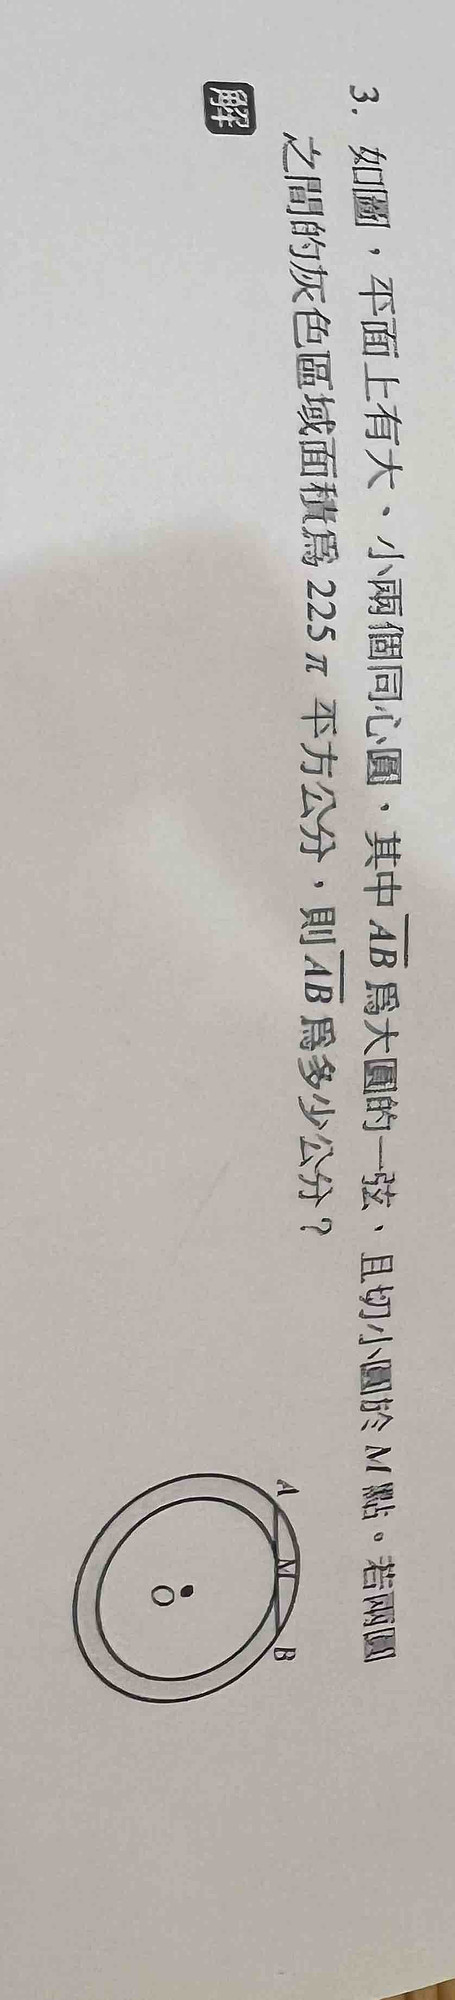 3. 如圖，平面上有大、小兩個同心圓，其中 AB 為大圓的一弦，且切小圓於 M 點。若兩圓
之間的灰色區域面積為 225π 平方公分，則 AB 為多少公分？
解
A
M
B
O